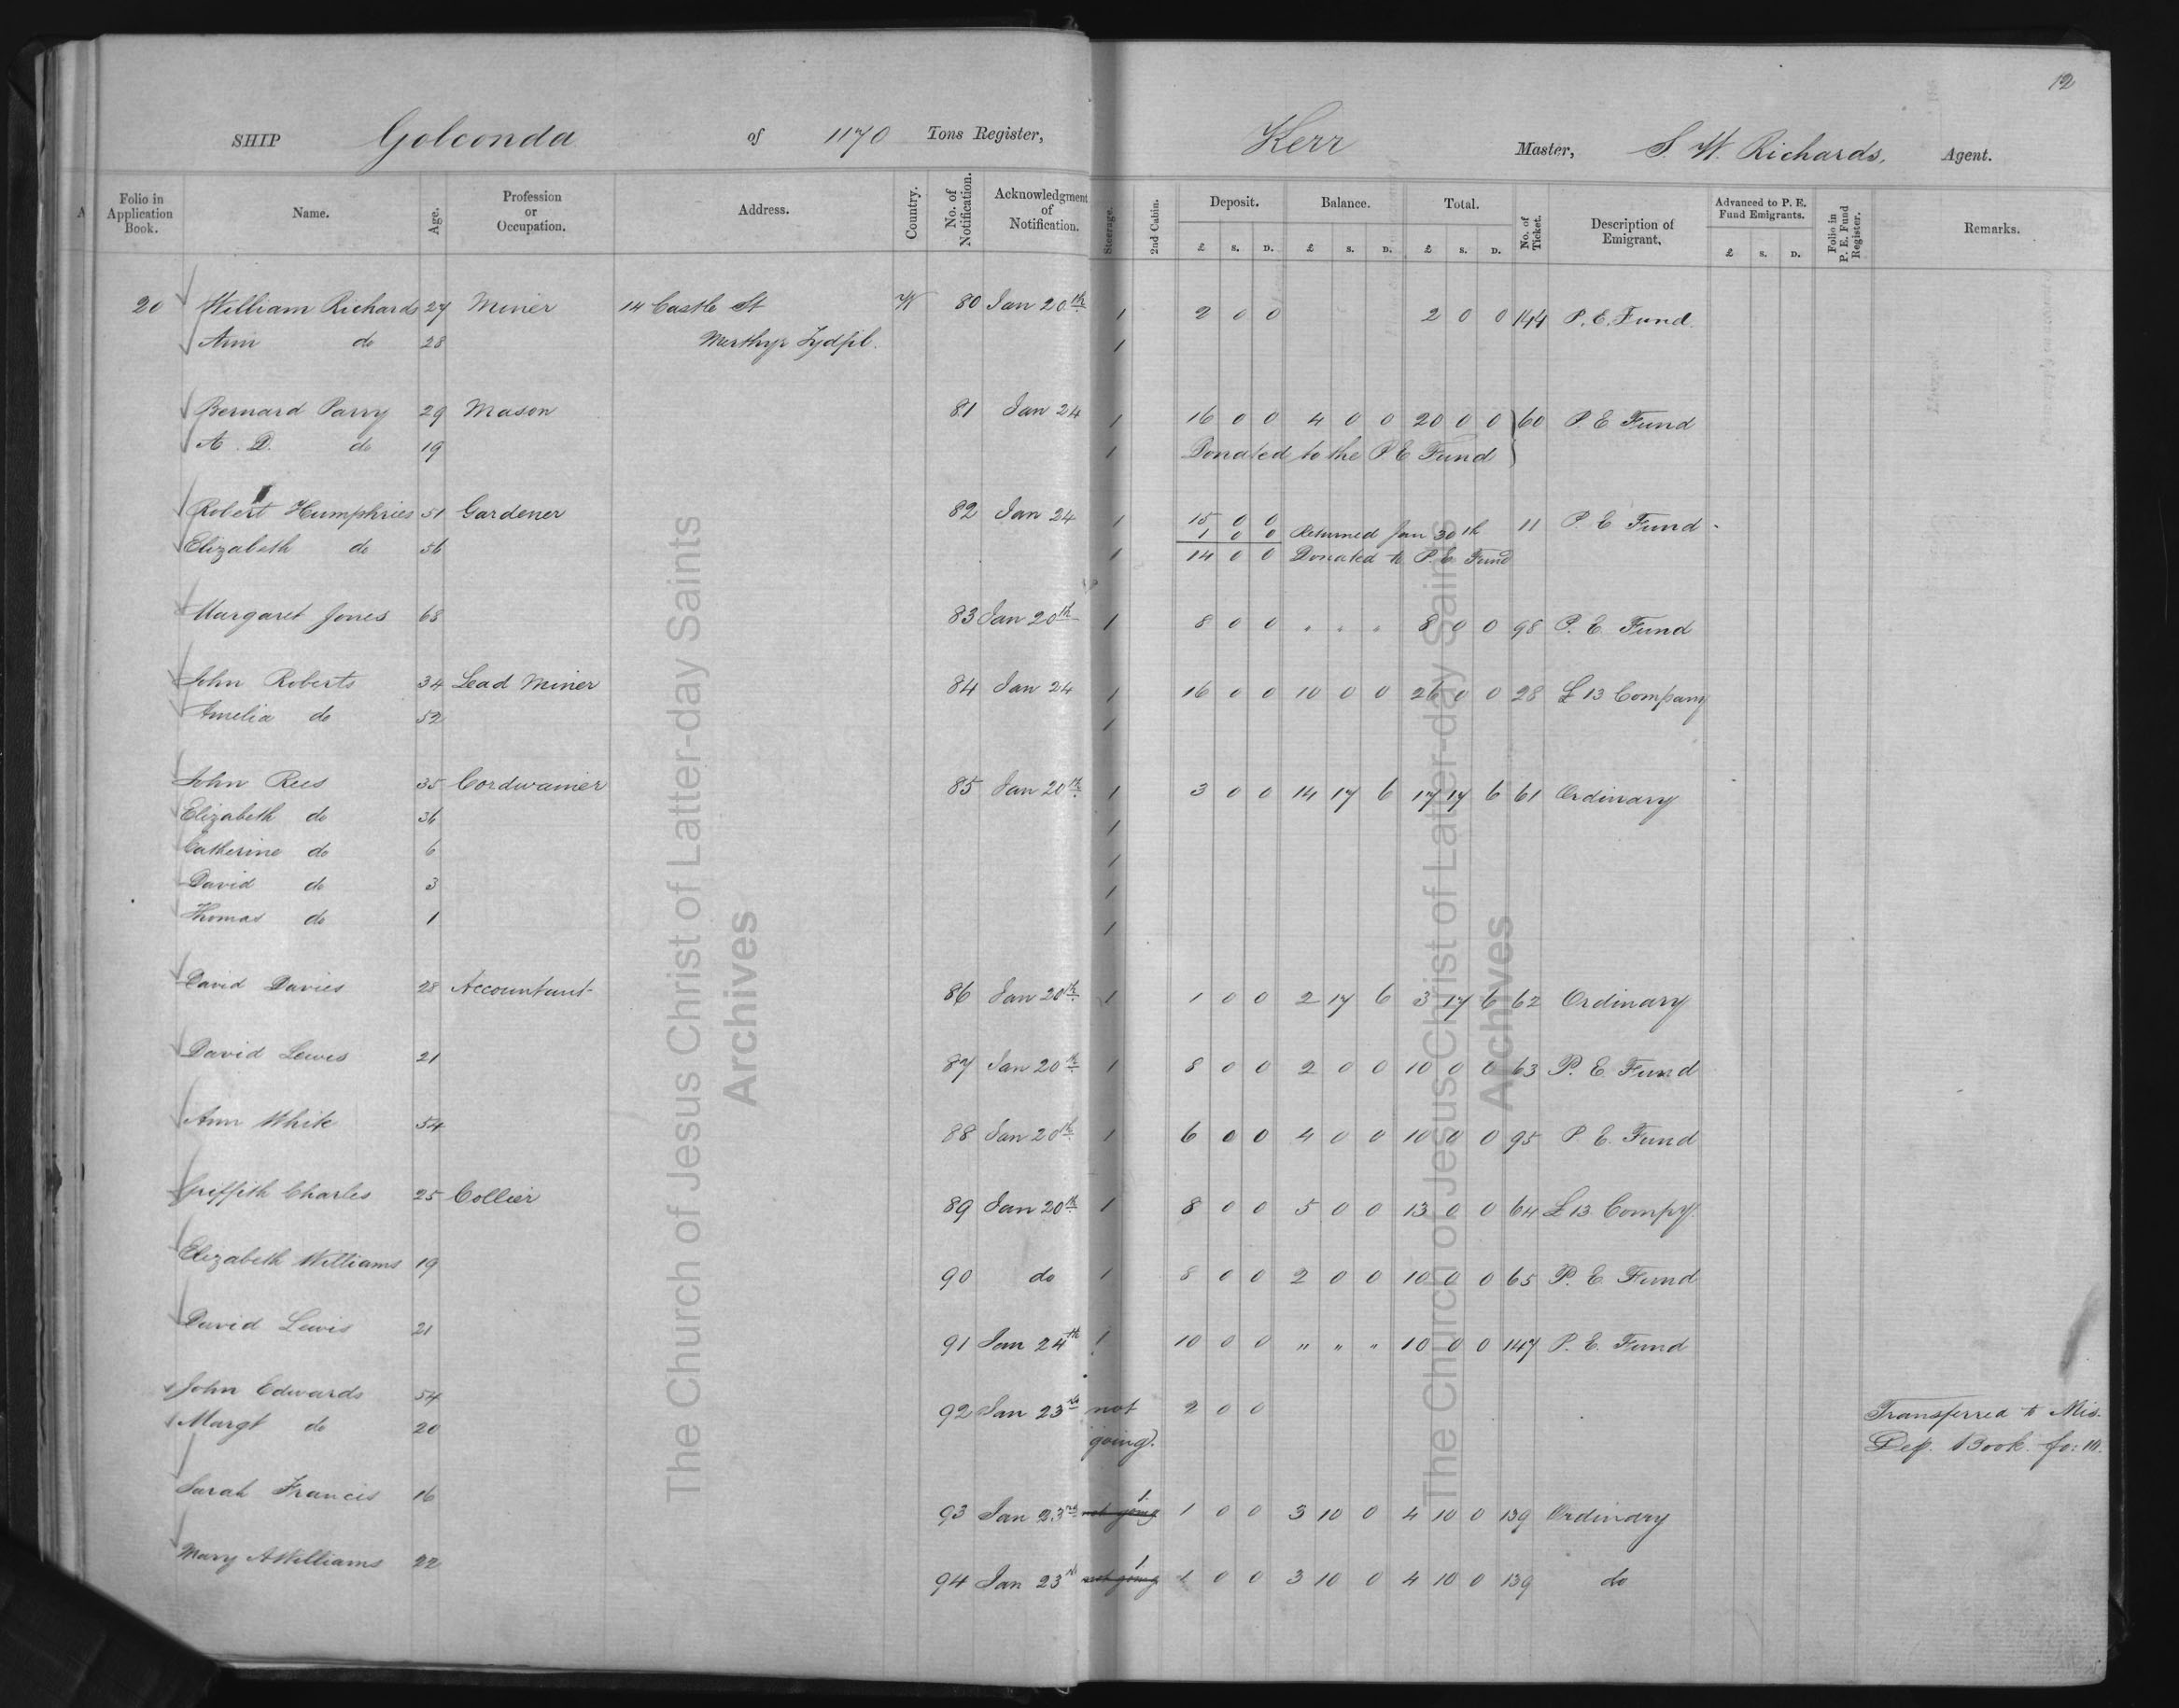 12
SHIP Golconda of 1170 Tons Register, Kerr Master, S. W. Richards, Agent.
Folio in Application Book. Name. Age. Profession or Occupation. Address. Country. No. of Notification. Acknowledgment of Notification. Steerage. 2nd Cabin. Deposit. Balance. Total. No. of Ticket. Description of Emigrant. Advanced to P. E. Fund Emigrants. Folio in P. E. Fund Register. Remarks.
£ S. D. £ S. D. £ S. D. £ S. D.
20 William Richards 27 Miner 14 Castle St W 80 Jan 20th 1 2 0 0 2 0 0 144 P. E. Fund
Ann do 28 Merthyr Tydfil. 1
Bernard Parry 29 Mason 81 Jan 24 1 16 0 0 4 0 0 20 0 0 60 P. E Fund
A. D. do 19 1 Donated to the P E Fund
Robert Humphries 51 Gardener 82 Jan 24 1 15 0 0 11 P. E Fund
1 0 0 Returned Jan 30th
Elizabeth do 56 1 14 0 0 Donated to P. E Fund
Margaret Jones 68 83 Jan 20th 1 8 0 0 " " " 8 0 0 98 P. E Fund
John Roberts 34 Lead Miner 84 Jan 24 1 16 0 0 10 0 0 26 0 0 28 £13 Company
Amelia do 52 1
John Rees 35 Cordwainer 85 Jan 20th 1 3 0 0 14 17 6 17 17 6 61 Ordinary
Elizabeth do 36 1
Catherine do 6 1
David do 3 1
Thomas do 1 1
David Davies 28 Accountant 86 Jan 20th 1 1 0 0 2 17 6 3 17 6 62 Ordinary
David Lewis 21 87 Jan 20th 1 8 0 0 2 0 0 10 0 0 63 P. E. Fund
Ann White 54 88 Jan 20th 1 6 0 0 4 0 0 10 0 0 95 P E. Fund
Griffith Charles 25 Collier 89 Jan 20th 1 8 0 0 5 0 0 13 0 0 64 £13 Compy.
Elizabeth Williams 19 90 do 1 8 0 0 2 0 0 10 0 0 65 P. E Fund
David Lewis 21 91 Jan 24th 1 10 0 0 " " " 10 0 0 147 P. E. Fund
John Edwards 54 92 Jan 23rd not 2 0 0 Transferred to Mis.
Margt do 20 going. Dep. Book fo: 10.
Sarah Francis 16 93 Jan 23rd not going 1 1 0 0 3 10 0 4 10 0 139 Ordinary
Mary A Williams 22 94 Jan 23rd not going 1 1 0 0 3 10 0 4 10 0 139 do
The Church of Jesus Christ of Latter-day Saints
Archives
The Church of Jesus Christ of Latter-day Saints
Archives